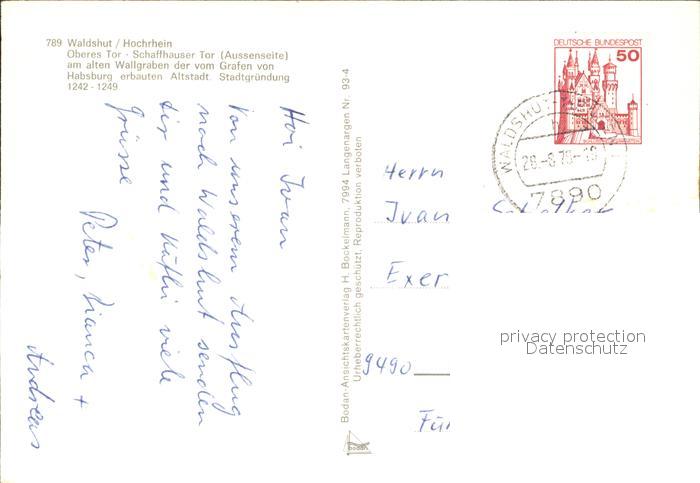 789 Waldshut / Hochrhein
Oberes Tor - Schaffhauser Tor (Aussenseite)
am alten Wallgraben der vom Grafen von
Habsburg erbauten Altstadt. Stadtgründung
1242 - 1249
Hoi Ivan
Von unserem Ausflug
nach Waldshut senden
dir und Küthi viele
Grüsse
Peter, Bianca +
Andreas
Bodan-Ansichtskartenverlag H. Bockelmann, 7994 Langenargen Nr. 93-4
Urheberrechtlich geschützt. Reproduktion verboten
bodan
DEUTSCHE BUNDESPOST
50
WALDSHUT-
7890
Herrn
Ivan
Exer
9490
Für
privacy protection
Datenschutz